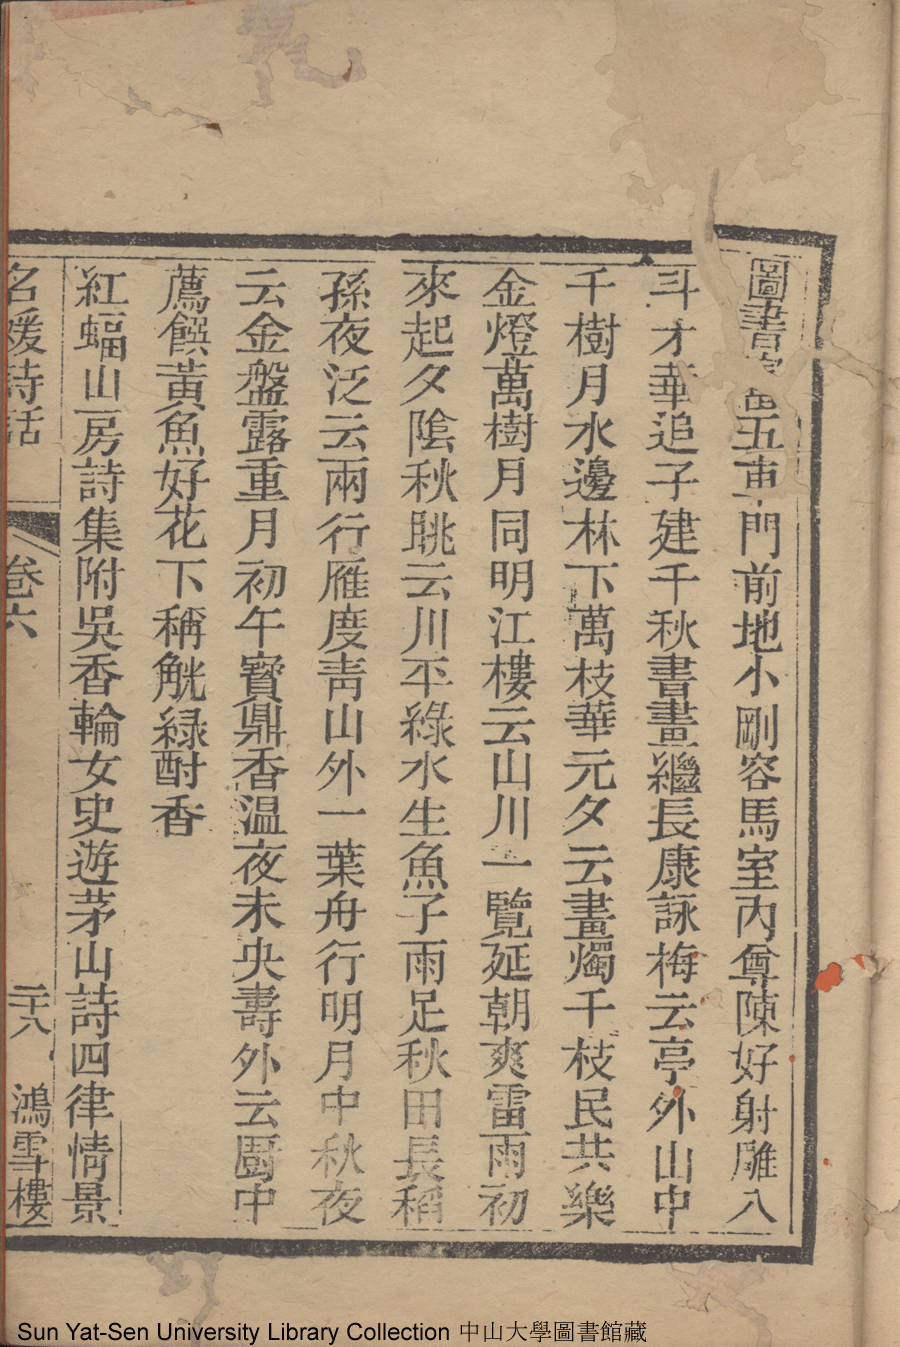 圖書富五車門前地小剛容馬室內尊陳好射雕八
斗才華追子建千秋書畫繼長康詠梅云亭外山中
千樹月水邊林下萬枝華元夕云畫燭千枝民共樂
金燈萬樹月同明江樓云山川一覽延朝爽雷雨初
來起夕陰秋眺云川平綠水生魚子雨足秋田長稻
孫夜泛云兩行雁度靑山外一葉舟行明月中秋夜
云金盤露重月初午寶鼎香溫夜未央壽外云厨中
薦饌黄魚好花下稱觥綠酎香
紅蝠山房詩集附吳香輪女史遊茅山詩四律情景
名媛詩話
卷六
二十八
鴻雪樓
Sun Yat-Sen University Library Collection 中山大學圖書館藏